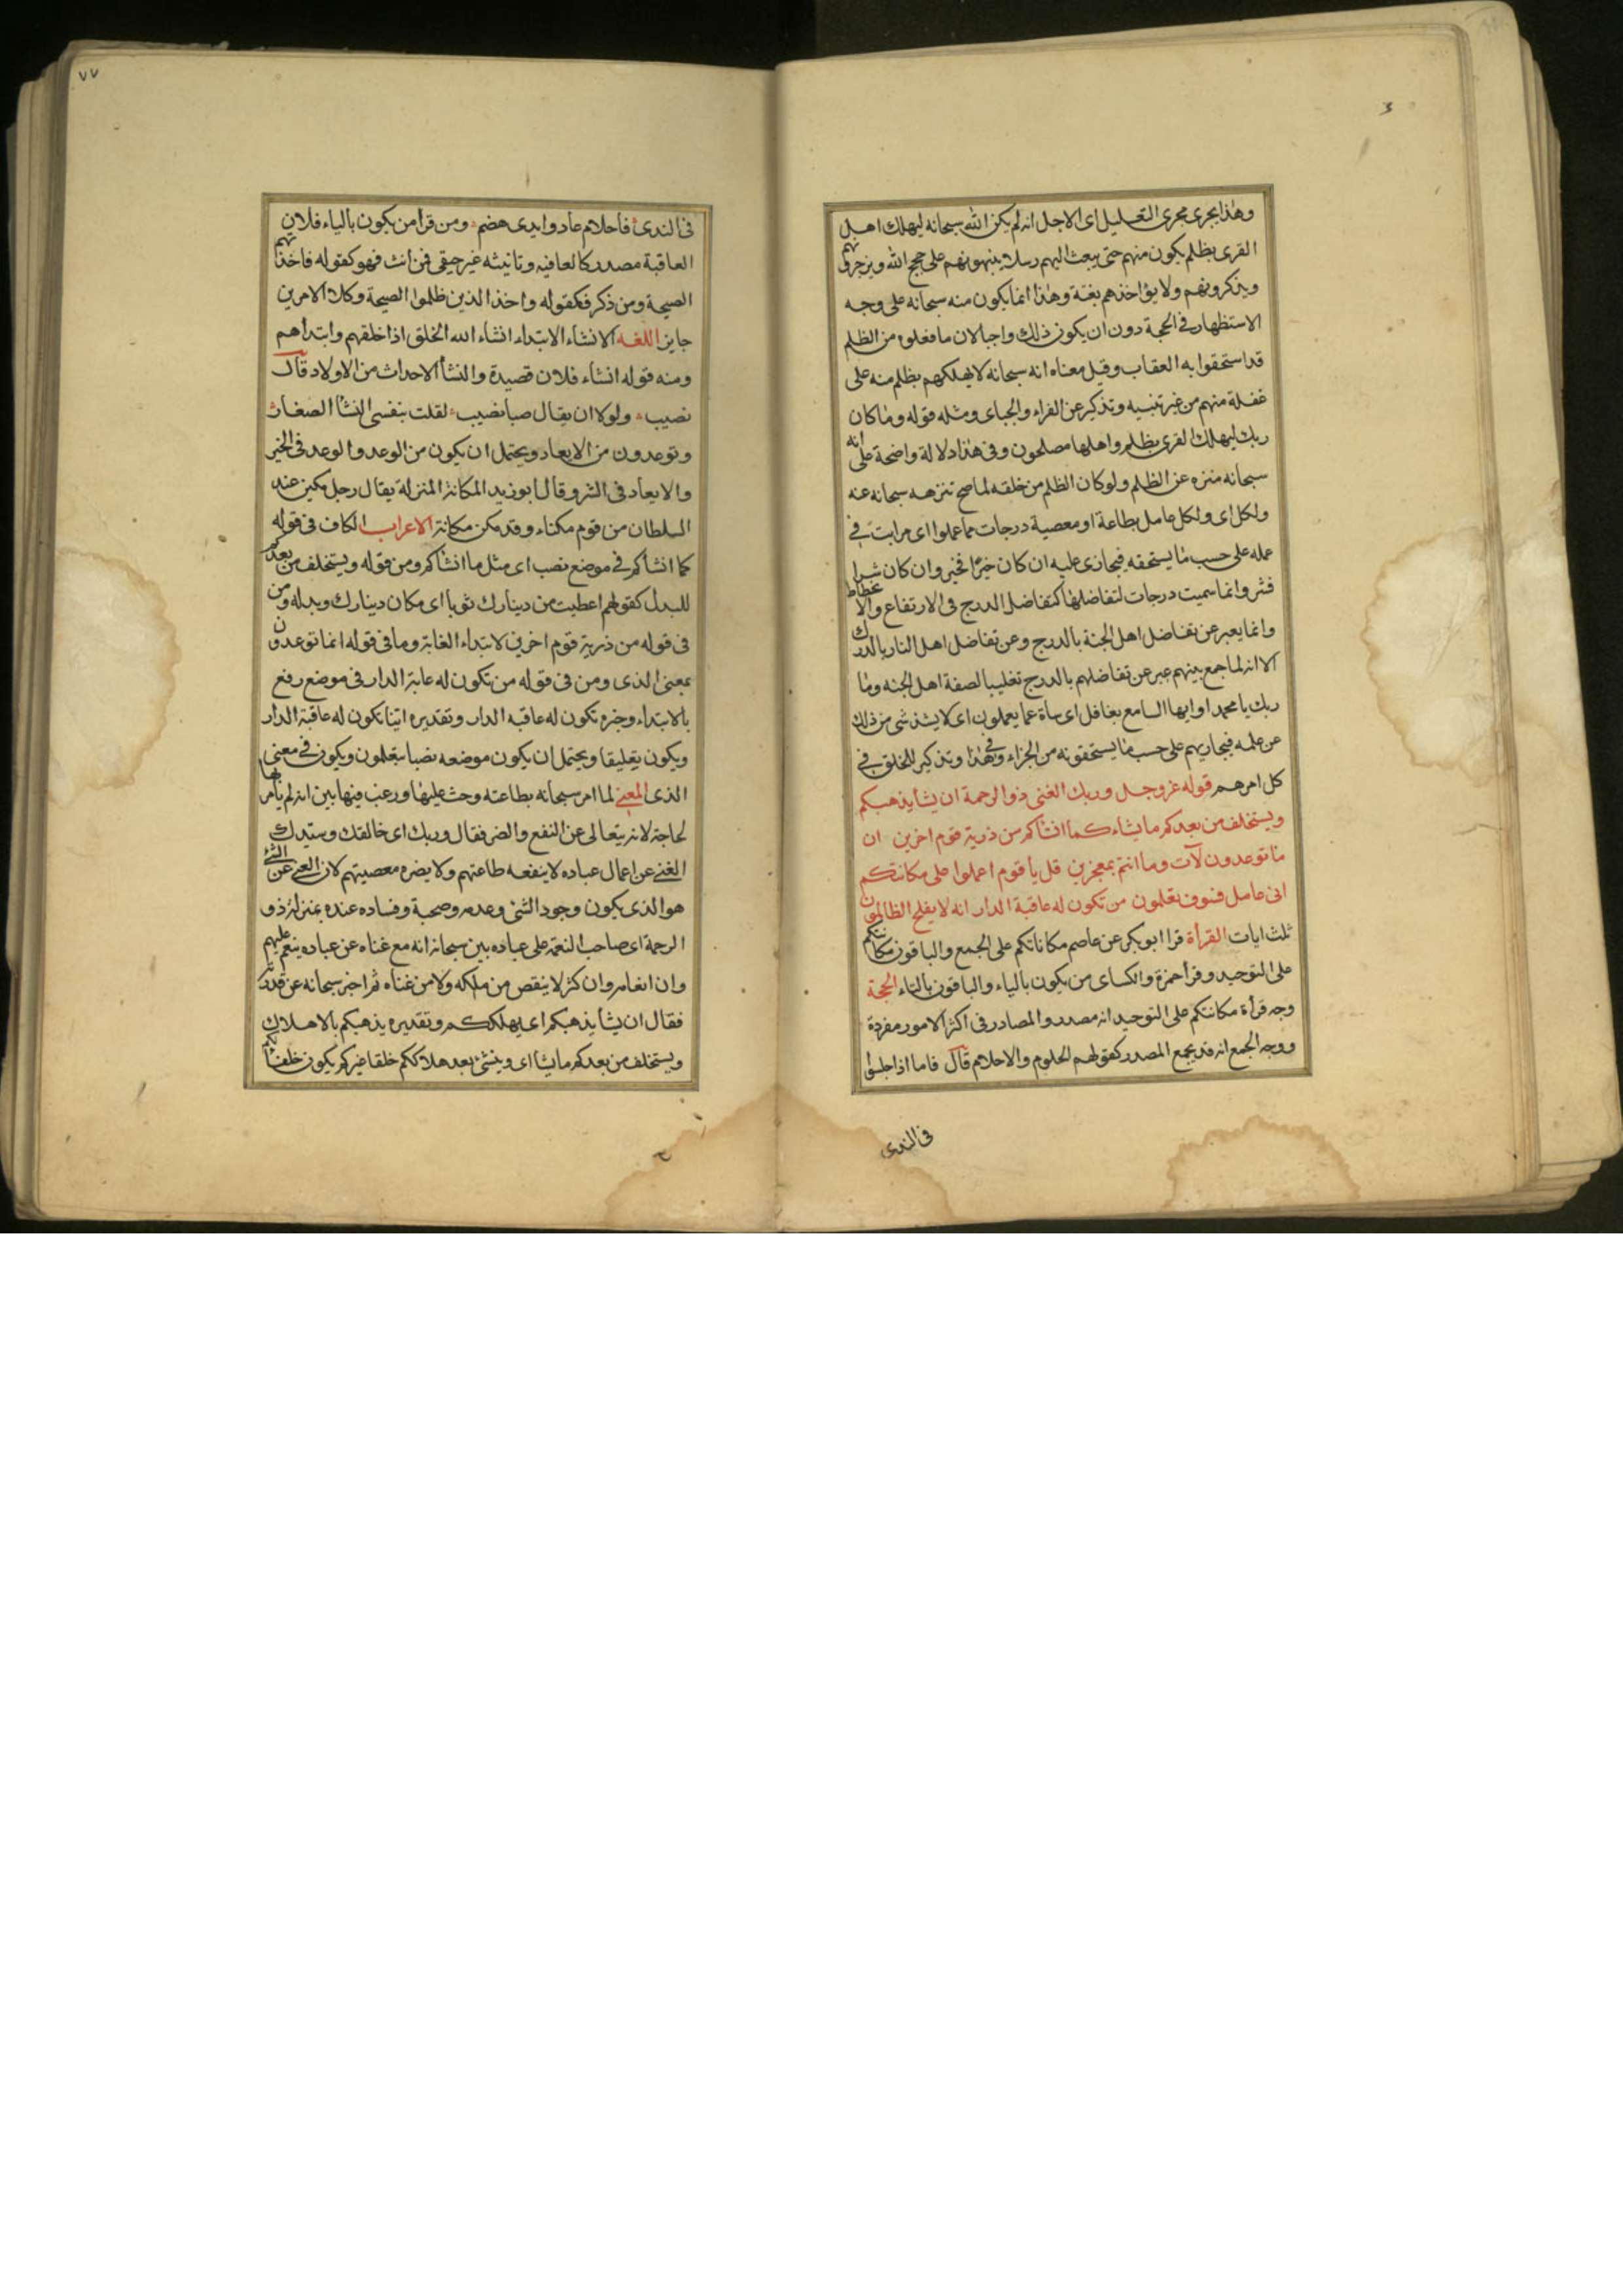 وهذا يجرى مجرى التعليل اى الاجل انه لم يكن الله سبحانه ليهلك اهل
القرى بظلم يكون منهم حتى يبعث اليهم رسلا ينبهونهم على حجج الله ويزجرونهم
ويذكرونهم ولا يؤاخذهم بغتة وهذا انما يكون منه سبحانه على وجه
الاستظهار فى الحجة دون ان يكون ذلك واجبا لان ما فعلوه من الظلم
قد استحقوا به العقاب وقيل معناه انه سبحانه لا يهلكهم بظلم منه على
غفلة منهم من غير تنبيه وتذكير عن الفراء والجباى ومثله قوله وما كان
ربك ليهلك القرى بظلم واهلها مصلحون وفى هذا دلالة واضحة على انه
سبحانه منزه عن الظلم ولو كان الظلم من خلقه لما صح تنزهه سبحانه عنه
ولكل اى ولكل عامل بطاعة او معصية درجات مما عملوا اى مراتب فى
عمله على حسب ما يستحقه فيجازى عليه ان كان خيرًا فخير وان كان شرا
فشر وانما سميت درجات لتفاضلها كتفاضل الدرج فى الارتفاع والانحطاط
وانما يعبر عن تفاضل اهل الجنة بالدرج وعن تفاضل اهل النار بالدرك
الا انه لما جمع بينهم عبر عن تفاضلهم بالدرج تغليبا لصفة اهل الجنه وما
ربك يا محمد او ايها السامع بغافل اى ساة عما يعملون اى لا يشذ شى من ذلك
عن علمه فيجازيهم على حسب ما يستحقونه من الجزاء وفى هذا وتذكير للخلق فى
كل امرهم قوله عز وجل وربك الغنى ذو الرحمة ان يشا يذهبكم
ويستخلف من بعدكم ما يشاء كما انشاكم من ذرية قوم اخرين ان
ما توعدون لآت وما انتم بمعجزين قل يا قوم اعملوا على مكانتكم
انى عامل فسوف تعلمون من تكون له عاقبة الدار انه لا يفلح الظالمون
ثلث ايات القرأة قرا ابو بكر عن عاصم مكاناتكم على الجمع والباقون مكانتكم
على التوحيد وقرأ حمزة والكساى من يكون بالياء والباقون بالتاء الحجة
وجه قرأة مكانتكم على التوحيد انه مصدر والمصادر فى اكثر الامور مفردة
ووجه الجمع انه قد يجمع المصدر كقولهم الحلوم والاحلام قال فاما اذا جلسوا
فى الندى
٧٧
فى الندى فاحلام عاد وايدى هضم ومن قرأ من يكون بالياء فلان
العاقبة مصدر كالعافيه وتانيثه غير حقيقى فمن انث فهو كقوله فاخذتهم
الصيحة ومن ذكر فكقوله واخذ الذين ظلموا الصيحة وكلا الامرين
جايز اللغه الانشاء الابتداء انشاء الله الخلق اذا خلقهم وابتدأهم
ومنه قوله انشاء فلان قصيدة والنشأ الاحداث من الاولاد قال
نصيب ولولا ان يقال صبا نصيب لقلت بنفسى النشأ الصغار
وتوعدون من الايعاد ويحتمل ان يكون من الوعد والوعد فى الخير
والايعاد فى الشر وقال ابو زيد المكانة المنزلة يقال رجل مكين عند
السلطان من قوم مكناء وقد مكن مكانة الاعراب الكاف فى قوله
كما انشأكم فى موضع نصب اى مثل ما انشأكم ومن قوله ويستخلف من بعدكم
للبدل كقولهم اعطيت من دينارك ثوبا اى مكان دينارك وبدله ومن
فى قوله من ذرية قوم اخرين لابتداء الغاية وما فى قوله انما توعدون
بمعنى الذى ومن فى قوله من تكون له عاقبة الدار فى موضع رفع
بالابتداء وخبره تكون له عاقبه الدار وتقديره اينا تكون له عاقبة الدار
ويكون تعليقا ويحتمل ان يكون موضعه نصبا بتعلمون ويكون فى معنى
الذى المعنى لما امر سبحانه بطاعته وحث عليها ورغب فيها بين انه لم يامر بها
لحاجة لانه يتعالى عن النفع والضر فقال وربك اى خالقك وسيدك
الغنى عن اعمال عباده لا ينفعه طاعتهم ولا يضره معصيتهم لان الغنى عن الشئ
هو الذى يكون وجود الشئ وعدمه وصحبة وفساده عنده بمنزلة ذو
الرحمة اى صاحب النعمة على عباده بين سبحانه انه مع غناه عن عباده ينعم عليهم
وان انعامه وان كثر لا ينقص من ملكه ولا من غناه ثم اخبر سبحانه عن قدرته
فقال ان يشا يذهبكم اى يهلككم وتقديره يذهبكم بالاهلاك
ويستخلف من بعدكم ما يشا اى وينشئ بعد هلاككم خلقا غيركم يكون خلفا لكم